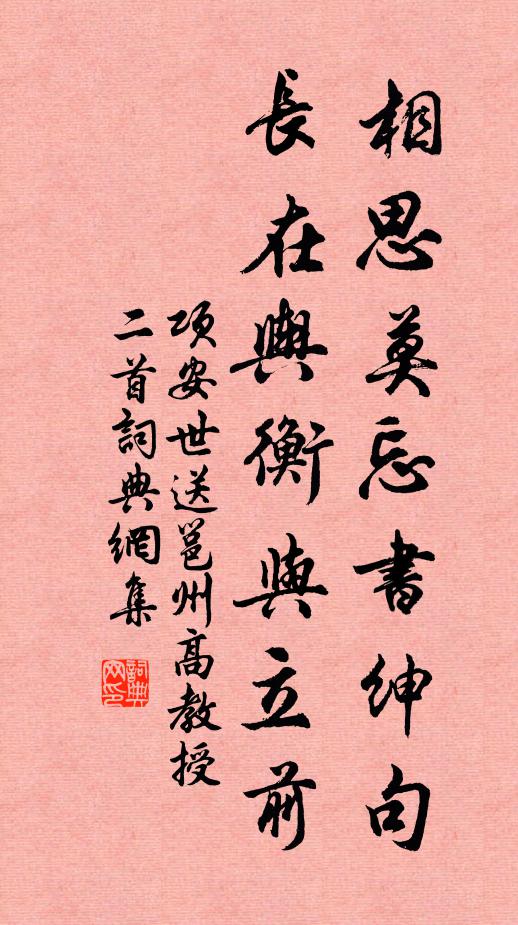 相思莫忘書紳句
長在輿衡與立前
項安世送邕州高教授
二首詞典網集
詞典網印